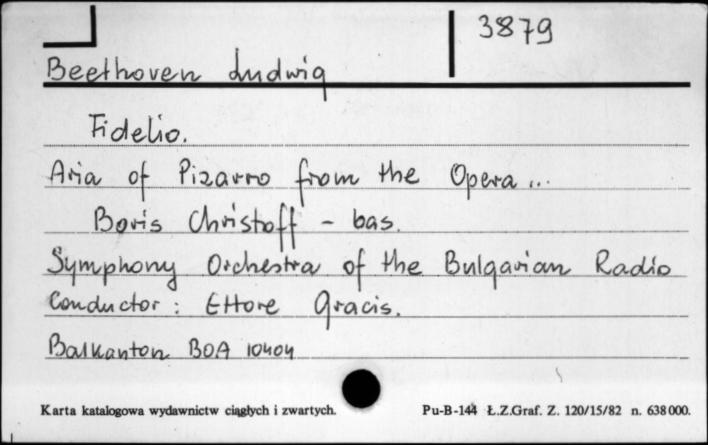 3879
Beethoven Ludwig
Fidelio.
Aria of Pizarro from the Opera...
Boris Christoff - bas.
Symphony Orchestra of the Bulgarian Radio
Conductor: Ettore Gracis.
Balkanton BOA 10404
Karta katalogowa wydawnictw ciągłych i zwartych. Pu-B-144 Ł.Z.Graf. Z. 120/15/82 n. 638 000.